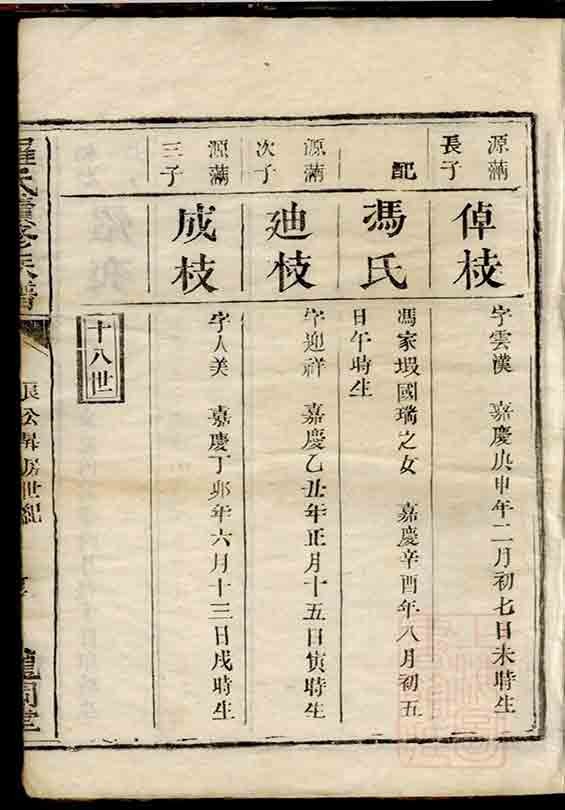 源滿
長子
倬枝
字雲漢 嘉慶庚申年二月初七日未時生
配
馮氏
馮家塅國瑞之女 嘉慶辛酉年八月初五
日午時生
源滿
次子
廸枝
字迎祥 嘉慶乙丑年正月十五日寅時生
源滿
三子
成枝
字人美 嘉慶丁卯年六月十三日戌時生
十八世
羅氏續修族譜
公昇房世紀